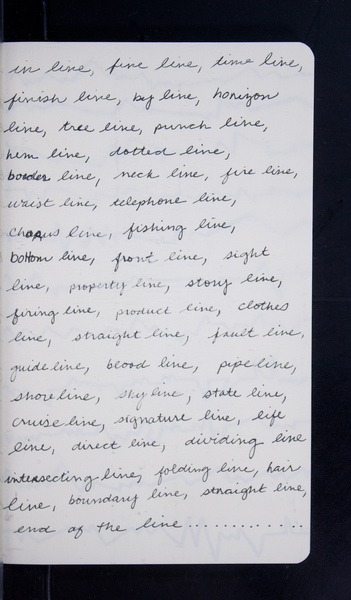 in line, fine line, time line,
finish line, by line, horizon
line, tree line, punch line,
hem line, dotted line,
border line, neck line, fire line,
waist line, telephone line,
chorus line, fishing line,
bottom line, front line, sight
line, property line, story line,
firing line, product line, clothes
line, straight line, fault line,
guide line, blood line, pipe line,
shore line, sky line, state line,
cruise line, signature line, life
line, direct line, dividing line
intersecting line, folding line, hair
line, boundary line, straight line,
end of the line .............